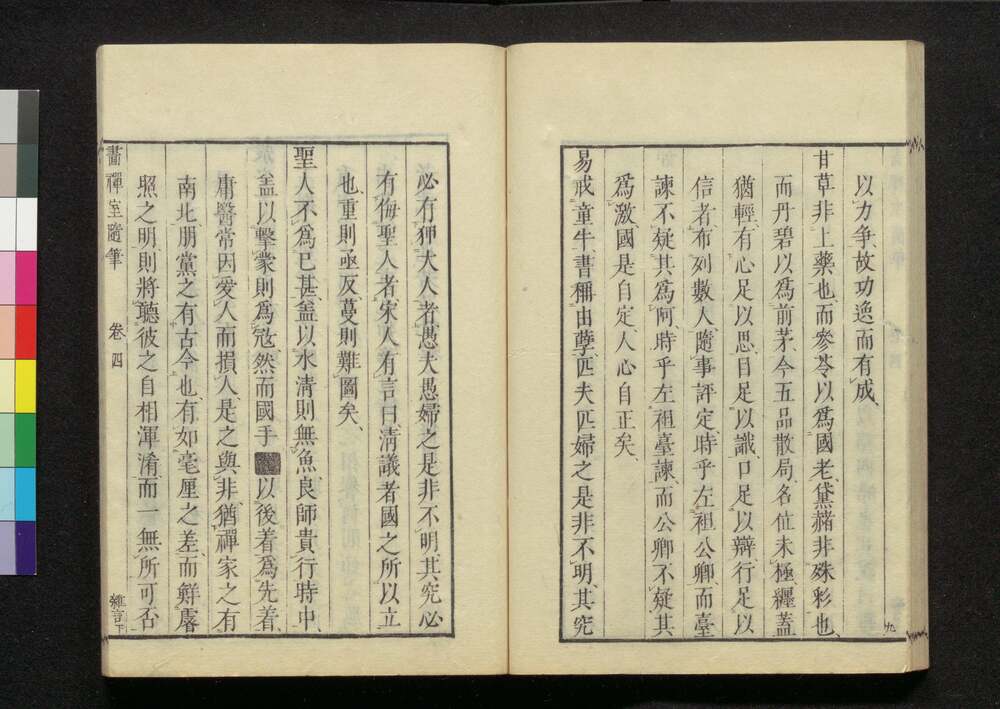 以力争、故功逸而有成、
甘草非上藥也、而參苓以爲國老、黛赭非殊彩也、
而丹碧以爲前茅、今五品散局、名位未極、纒蓋
猶輕、有心足以思、目足以識、口足以辯、行足以
信者、布列數人、隨事評定、時乎左袒公卿、而臺
諫不疑其爲阿、時乎左袒臺諫、而公卿不疑其
爲激、國是自定、人心自正矣、
易戒童牛、書稱由孽、匹夫匹婦之是非不明、其究
九
必有狎大人者、愚夫愚婦之是非不明、其究必
有侮聖人者、宋人有言曰、淸議者國之所以立
也、重則亟反、蔓則難圖矣、
聖人不爲已甚、盖以水淸則無魚、良師貴行時中、
盖以擊蒙則爲冦、然而國手以後着爲先着、
庸醫常因愛人而損人、是之與非、猶禪家之有
南北、朋黨之有古今也、有如毫厘之差、而鮮
照之明、則將聽彼之自相渾淆、而一無所可否
畵禪室隨筆
卷四
雜言下